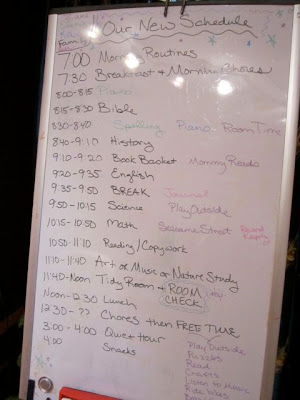 Family
Our New Schedule
7:00 Morning Routines
7:30 Breakfast & Morning Chores
8:00-8:15 Piano
8:15-8:30 Bible
8:30-8:40 Spelling Piano Room Time
8:40-9:10 History
9:10-9:20 Book Basket Mommy Reads
9:20-9:35 English
9:35-9:50 BREAK Journal
9:50-10:15 Science Play Outside
10:15-10:50 Math Seasame Street
10:50-11:10 Reading/Copywork
11:10-11:40 Art or Music or Nature Study
11:40-Noon Tidy Room & ROOM
CHECK
Noon-12:30 Lunch
12:30-?? Chores then FREE TIME
3:00-4:00 Quiet Hour
4:00 Snacks
Play Outside
Puzzles
Read
Crafts
Listen to Music
Ride bikes